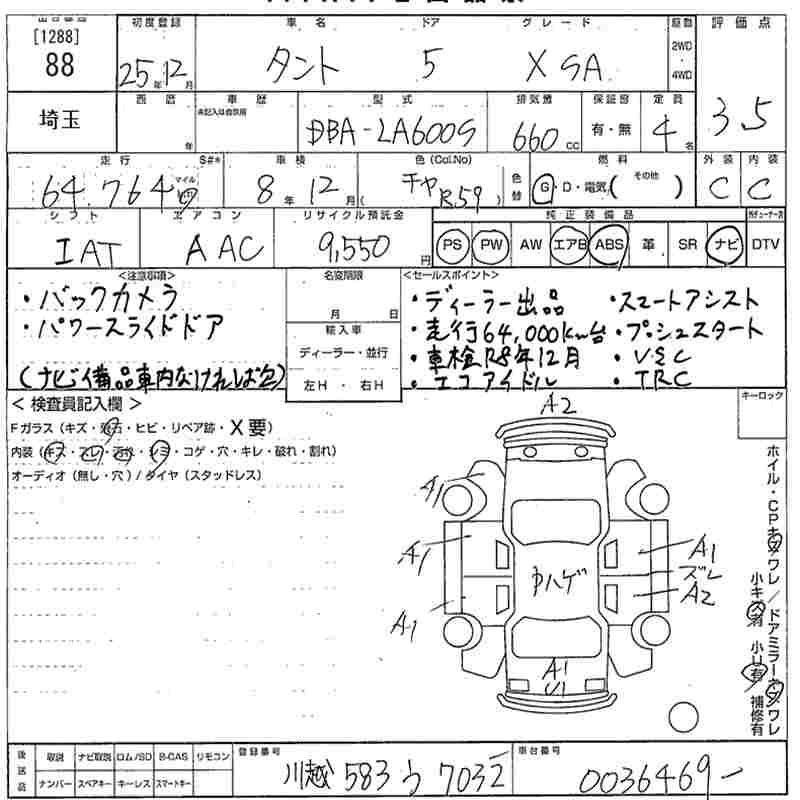 [1288]
88
初度登録 車名 ドア グレード 駆動 評価点
25年12月 タント 5 X SA 2WD・4WD 3.5
埼玉
西暦 車歴 型式 排気量 保証書 定員
年 未記入は自家用 DBA-LA600S 660cc 有・無 4名
走行 S#* 車検 色(Col.No) 色替 燃料 外装 内装
マイル
8年12月 チャ R59 G・D・電気( その他 ) C C
シフト エアコン リサイクル預託金 純正装備品
IAT AAC 9,550円 PS PW AW エアB ABS 革 SR ナビ DTV
<注意事項> 名変期限 <セールスポイント>
・バックカメラ
・パワースライドドア
(ナビ備品車内なければ欠)
月 日
輸入車
ディーラー・並行
左H ・ 右H
・ディーラー出品 ・スマートアシスト
・走行64,000km台 ・プッシュスタート
・車検R8年12月 ・VSC
・エコアイドル ・TRC
< 検査員記入欄 > キーロック
Fガラス(キズ・飛石・ヒビ・リペア跡・X要)
内装(キズ・スレ・汚れ・シミ・コゲ・穴・キレ・破れ・割れ)
オーディオ(無し・穴)/タイヤ(スタッドレス)
A2
A1
A1
A1
A1
ズレ
A2
ハゲ
A1
U1
ホイル・CPキズワレ/ドアミラーキズワレ
小キズ有 小U有 補修有
後送品 取説 ナビ取説 ロム/SD B-CAS リモコン
ナンバー スペアキー キーレス スマートキー
登録番号 川越 583 う 7032
車台番号 0036469